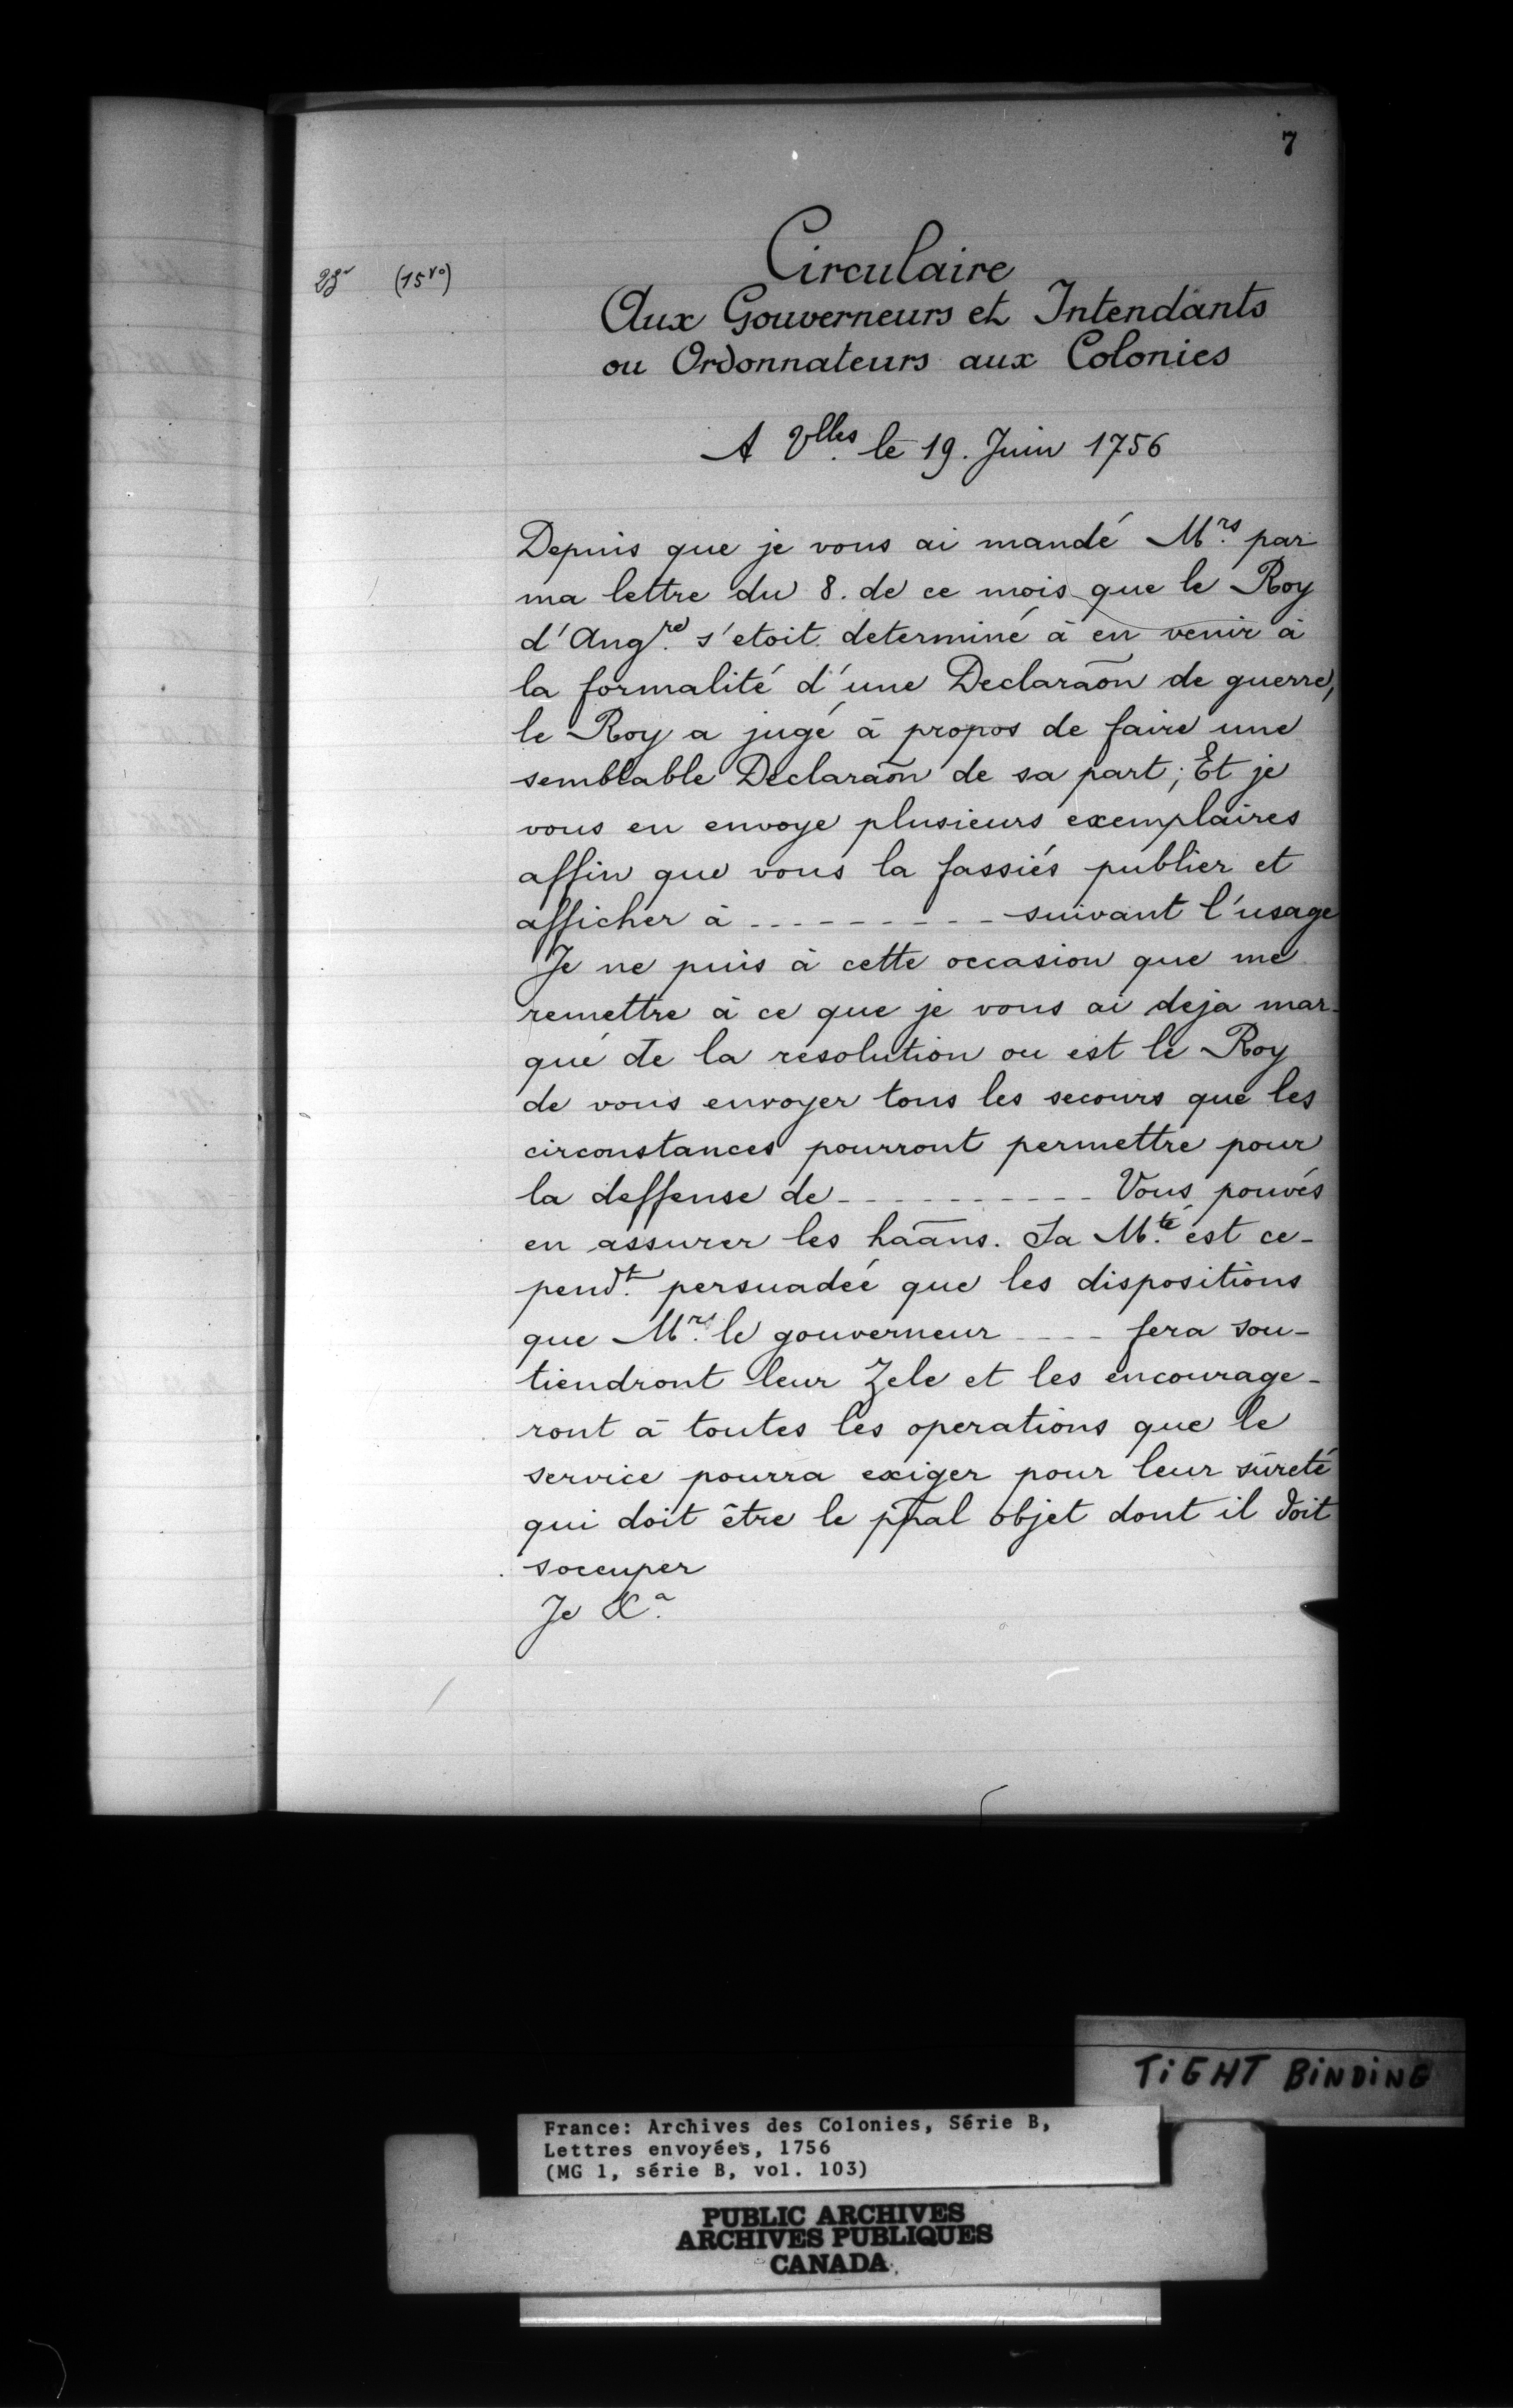 7
(15ro)
Circulaire
Aux Gouverneurs et Intendants
ou Ordonnateurs aux Colonies
A Vlles. le 19. Juin 1756
Depuis que je vous ai mandé Mrs. par
ma lettre du 8. de ce mois que le Roy
d'Angre. s'etoit determiné à en venir à
la formalité d'une Declaraõn de guerre,
le Roy a jugé à propos de faire une
semblable Declaraõn de sa part; Et je
vous en envoye plusieurs exemplaires
affin que vous la fassiés publier et
afficher à --------- suivant l'usage
Je ne puis à cette occasion que me
remettre à ce que je vous ai deja mar-
qué de la resolution ou est le Roy
de vous envoyer tous les secours que les
circonstances pourront permettre pour
la deffense de ---------- Vous pouvés
en assurer les haãns. Sa Mté. est ce-
pendt. persuadée que les dispositions
que Mrs. le gouverneur ---- fera sou-
tiendront leur Zele et les encourage-
ront à toutes les operations que le
service pourra exiger pour leur sûreté
qui doit être le pp̃al objet dont il doit
soccuper
Je &a.
TIGHT BINDING
France: Archives des Colonies, Série B,
Lettres envoyées, 1756
(MG 1, série B, vol. 103)
PUBLIC ARCHIVES
ARCHIVES PUBLIQUES
CANADA